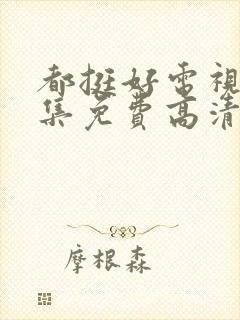 都挺好電視
集免費高清
摩根森